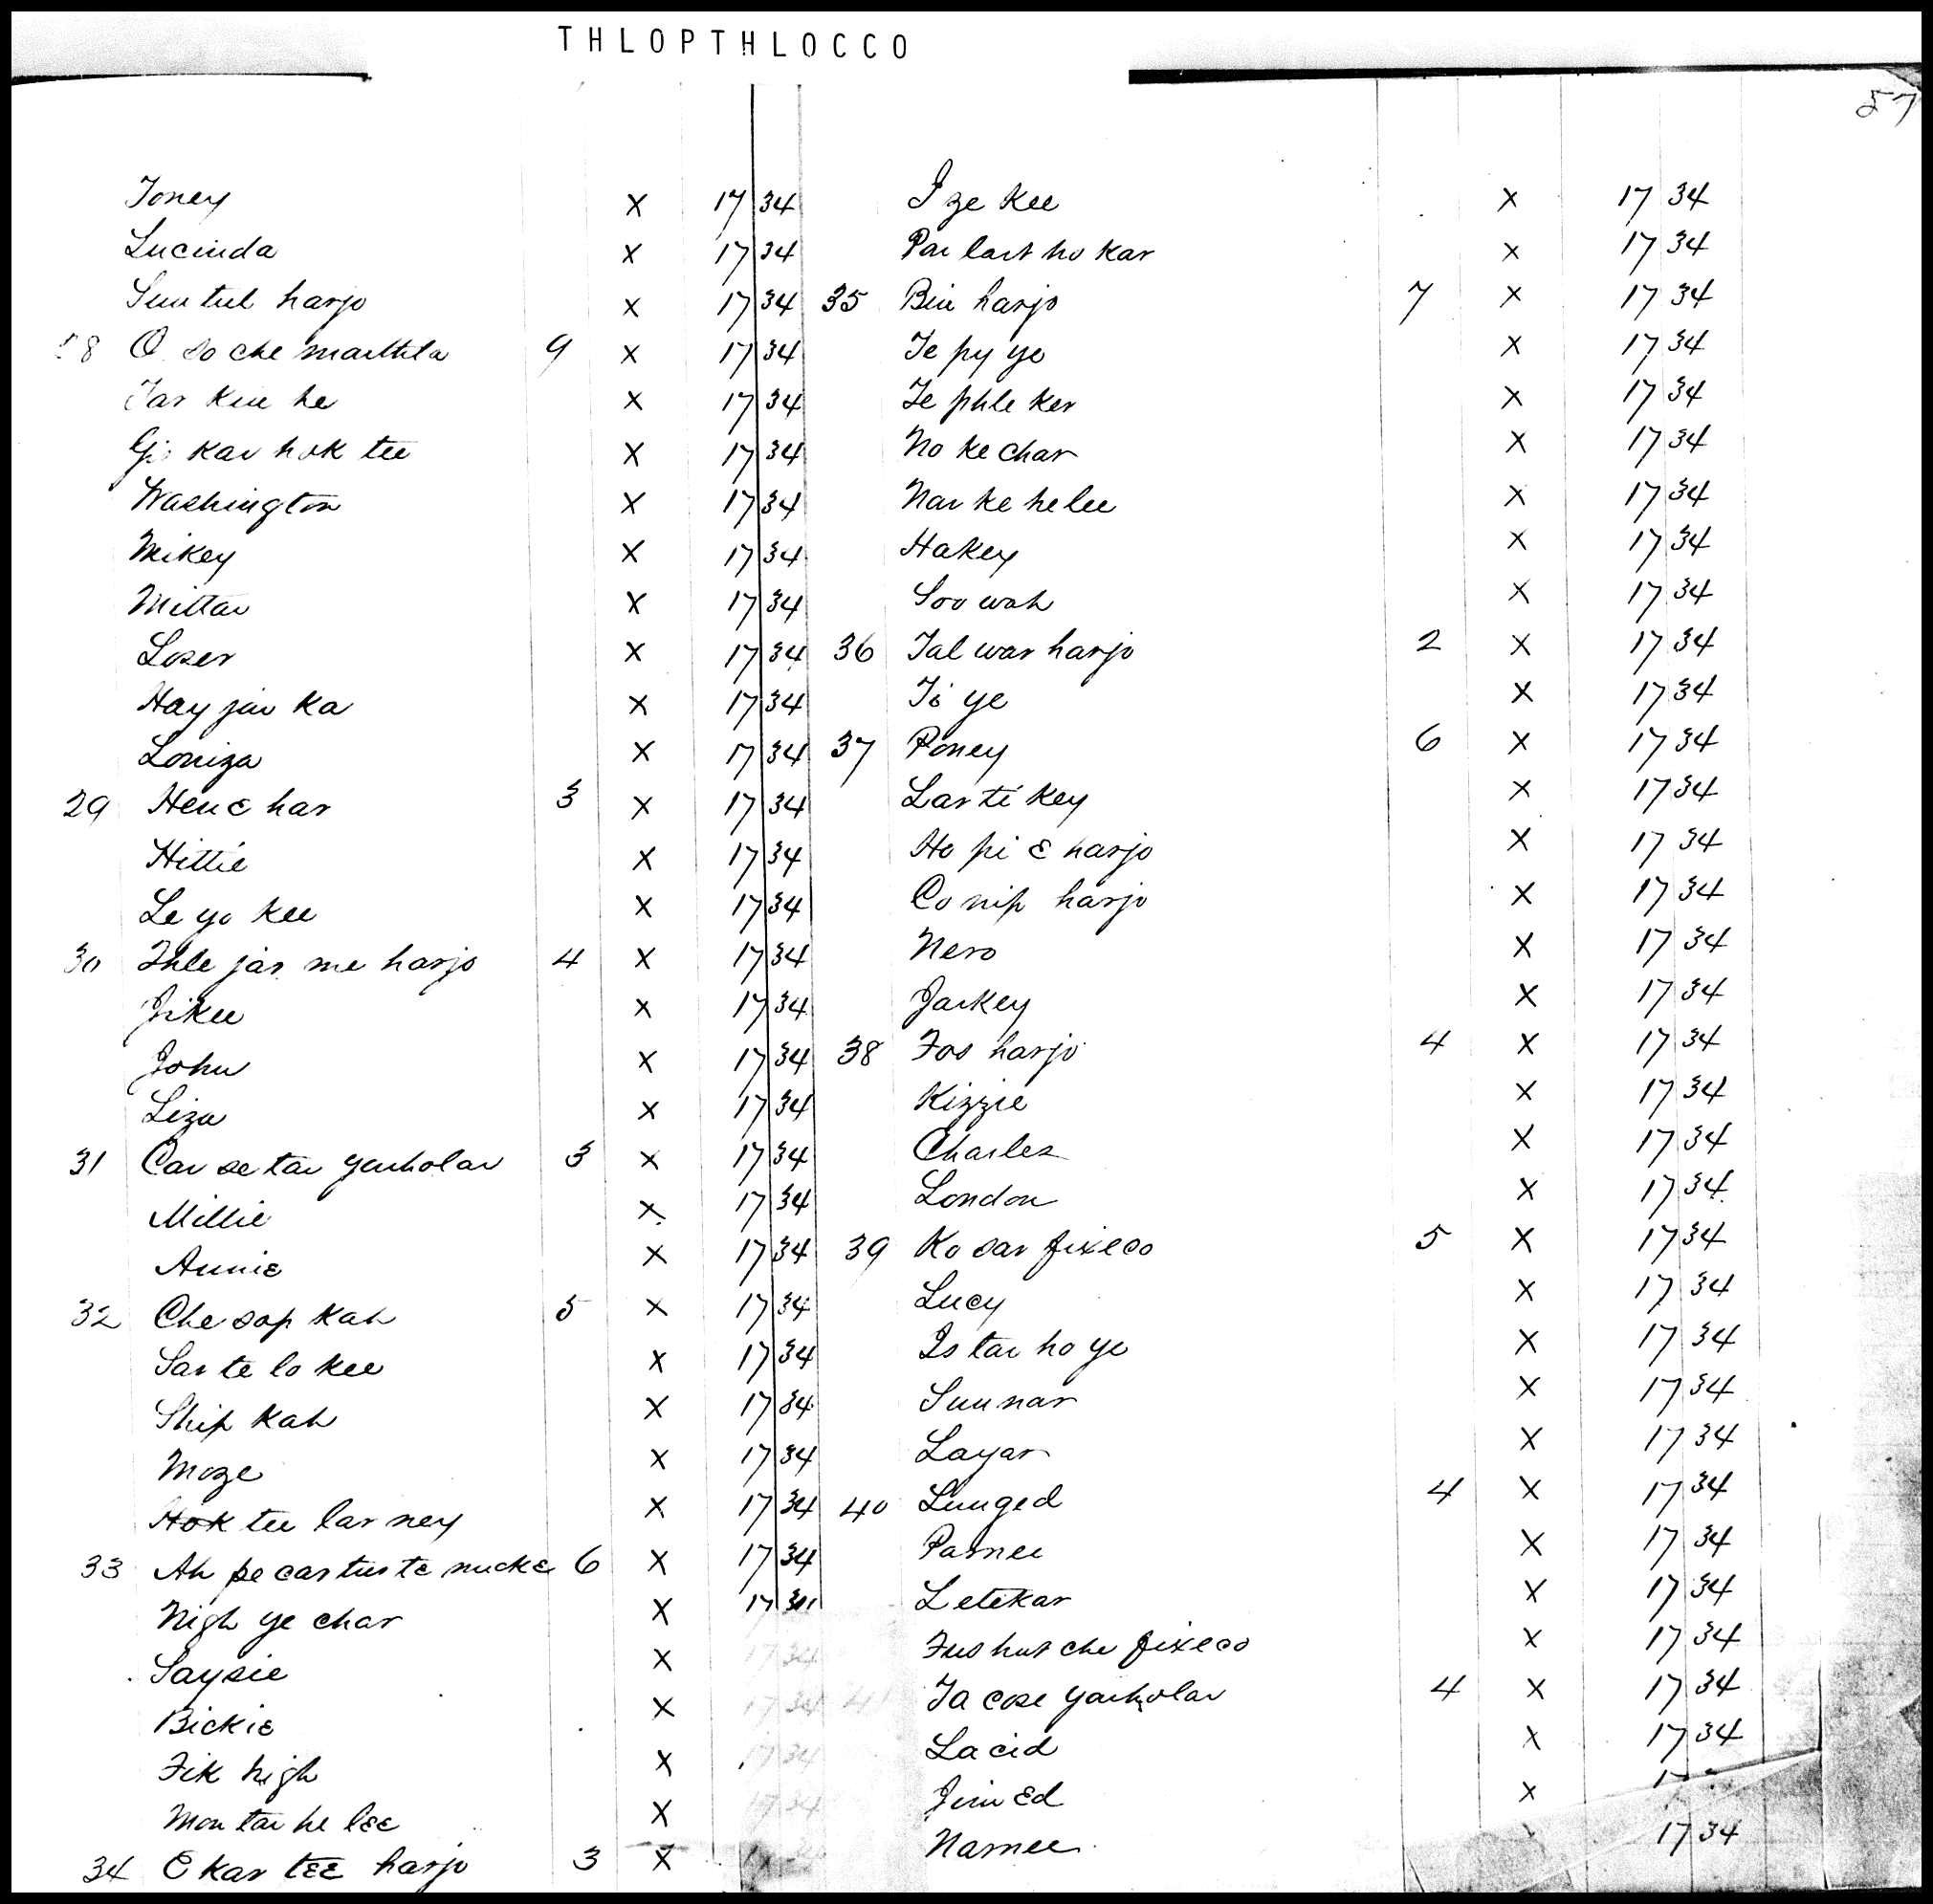 THLOPTHLOCCO
57
Toney X 17 34
Lucinda X 17 34
Sun tul harjo X 17 34
28 O so che marthla 9 X 17 34
Tar kin he X 17 34
Gi kar hok tee X 17 34
Washington X 17 34
Mikey X 17 34
Mittar X 17 34
Loser X 17 34
Hay jar ka X 17 34
Loniza X 17 34
29 Hen e har 3 X 17 34
Hittie X 17 34
Le yo kee X 17 34
30 Thle jar me harjo 4 X 17 34
Jikee X 17 34
John X 17 34
Liza X 17 34
31 Car se tar yarholar 3 X 17 34
Millie X 17 34
Annie X 17 34
32 Che sap kah 5 X 17 34
Sar te lo kee X 17 34
Ship kah X 17 34
Moze X 17 34
Hok tee lar ney X 17 34
33 Ah pe cas tus te nucke 6 X 17 34
Nigh ye char X 17 34
Saysie X 17 34
Bickie X 17 34
Fik high X 17 34
Mon tar he lee X 17 34
34 E kar tee harjo 3 X 17 34
I ze kee X 17 34
Par last ho kar X 17 34
35 Bin harjo 7 X 17 34
Te py ye X 17 34
Te phle ker X 17 34
No ke char X 17 34
Nar ke he lee X 17 34
Hakey X 17 34
Soo wah X 17 34
36 Tal war harjo 2 X 17 34
Ti ye X 17 34
37 Poney 6 X 17 34
Lar ti key X 17 34
Ho pi e harjo X 17 34
Co nip harjo X 17 34
Nero X 17 34
Jarkey X 17 34
38 Fos harjo 4 X 17 34
Kizzie X 17 34
Charles X 17 34
London X 17 34
39 Ko sar fixeco 5 X 17 34
Lucy X 17 34
Is tar ho ye X 17 34
Sun nar X 17 34
Layar X 17 34
40 Lunged 4 X 17 34
Parnee X 17 34
Letekar X 17 34
Fus hut che fixeco X 17 34
41 Ta cose yarholar 4 X 17 34
Lacid X 17 34
Jim Ed X 17
Narnee 17 34